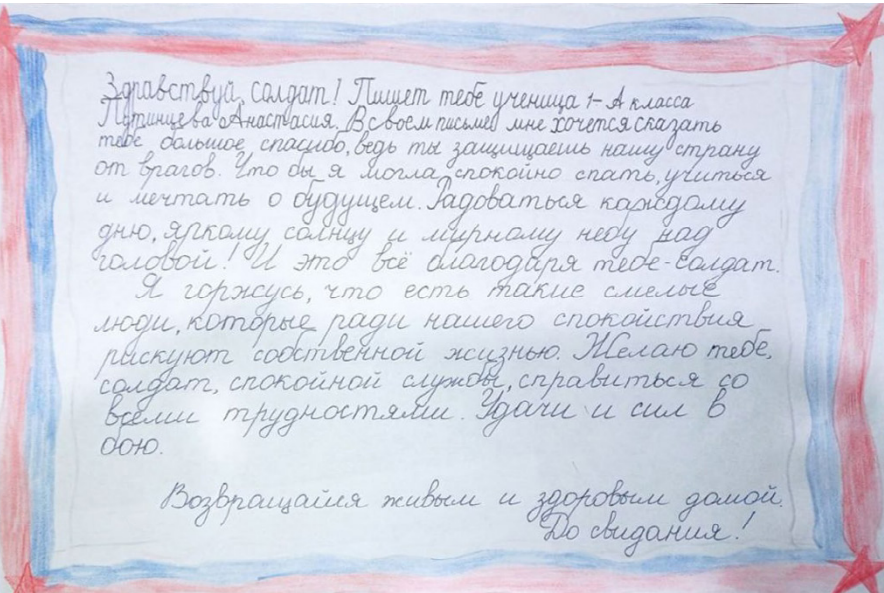 Здравствуй, солдат! Пишет тебе ученица 1-А класса
Анастасия. В своем письме мне хочется сказать
тебе большое спасибо, ведь ты защищаешь нашу страну
от врагов. Что бы я могла спокойно спать, учиться
и мечтать о будущем. Радоваться каждому
дню, яркому солнцу и мирному небу над
головой! И это всё благодаря тебе-солдат.
Я горжусь, что есть такие смелые
люди, которые ради нашего спокойствия
рискуют собственной жизнью. Желаю тебе,
солдат, спокойной службы, справиться со
всеми трудностями. Удачи и сил в
бою.
Возвращайся живым и здоровым домой.
До свидания!